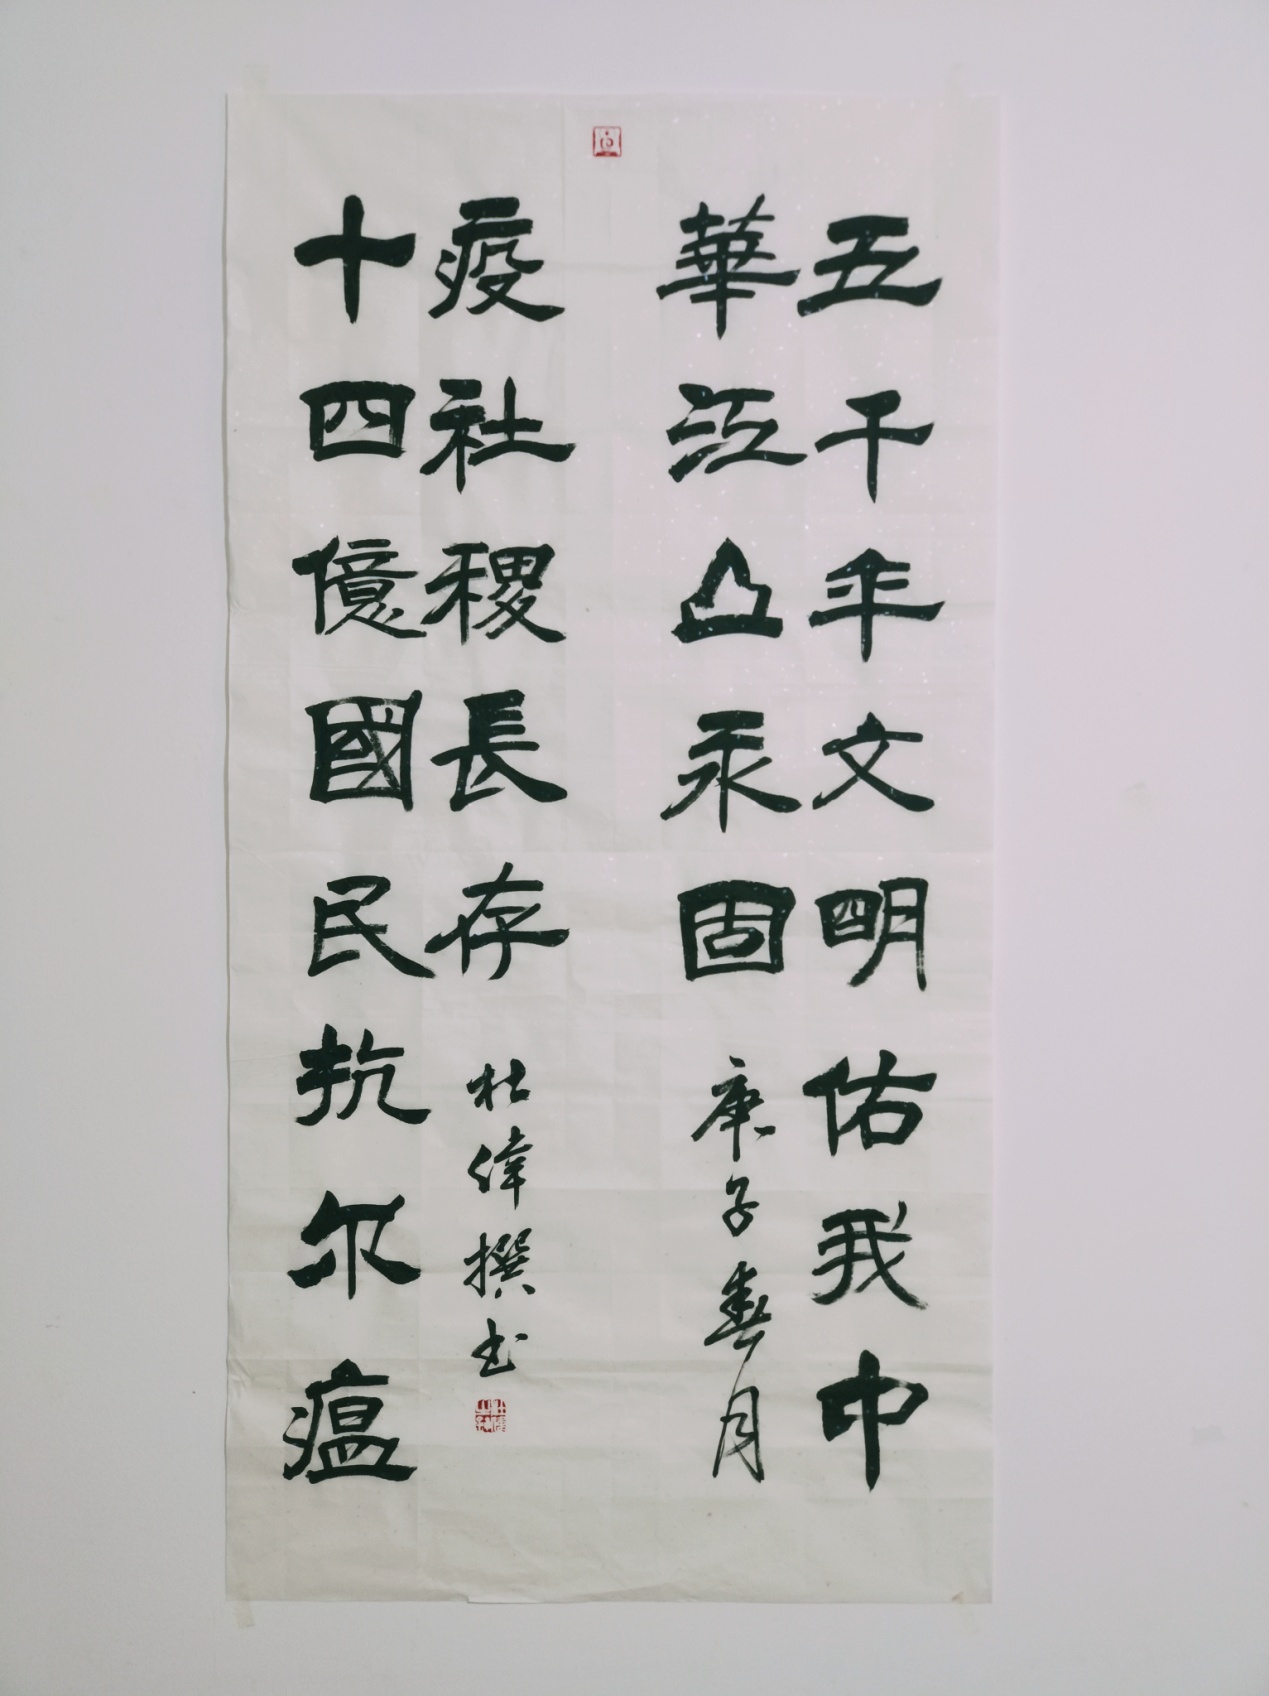 五千年文明佑我中
華江山永固
庚子春月
十四億國民抗尔瘟
疫社稷長存
杜偉撰书